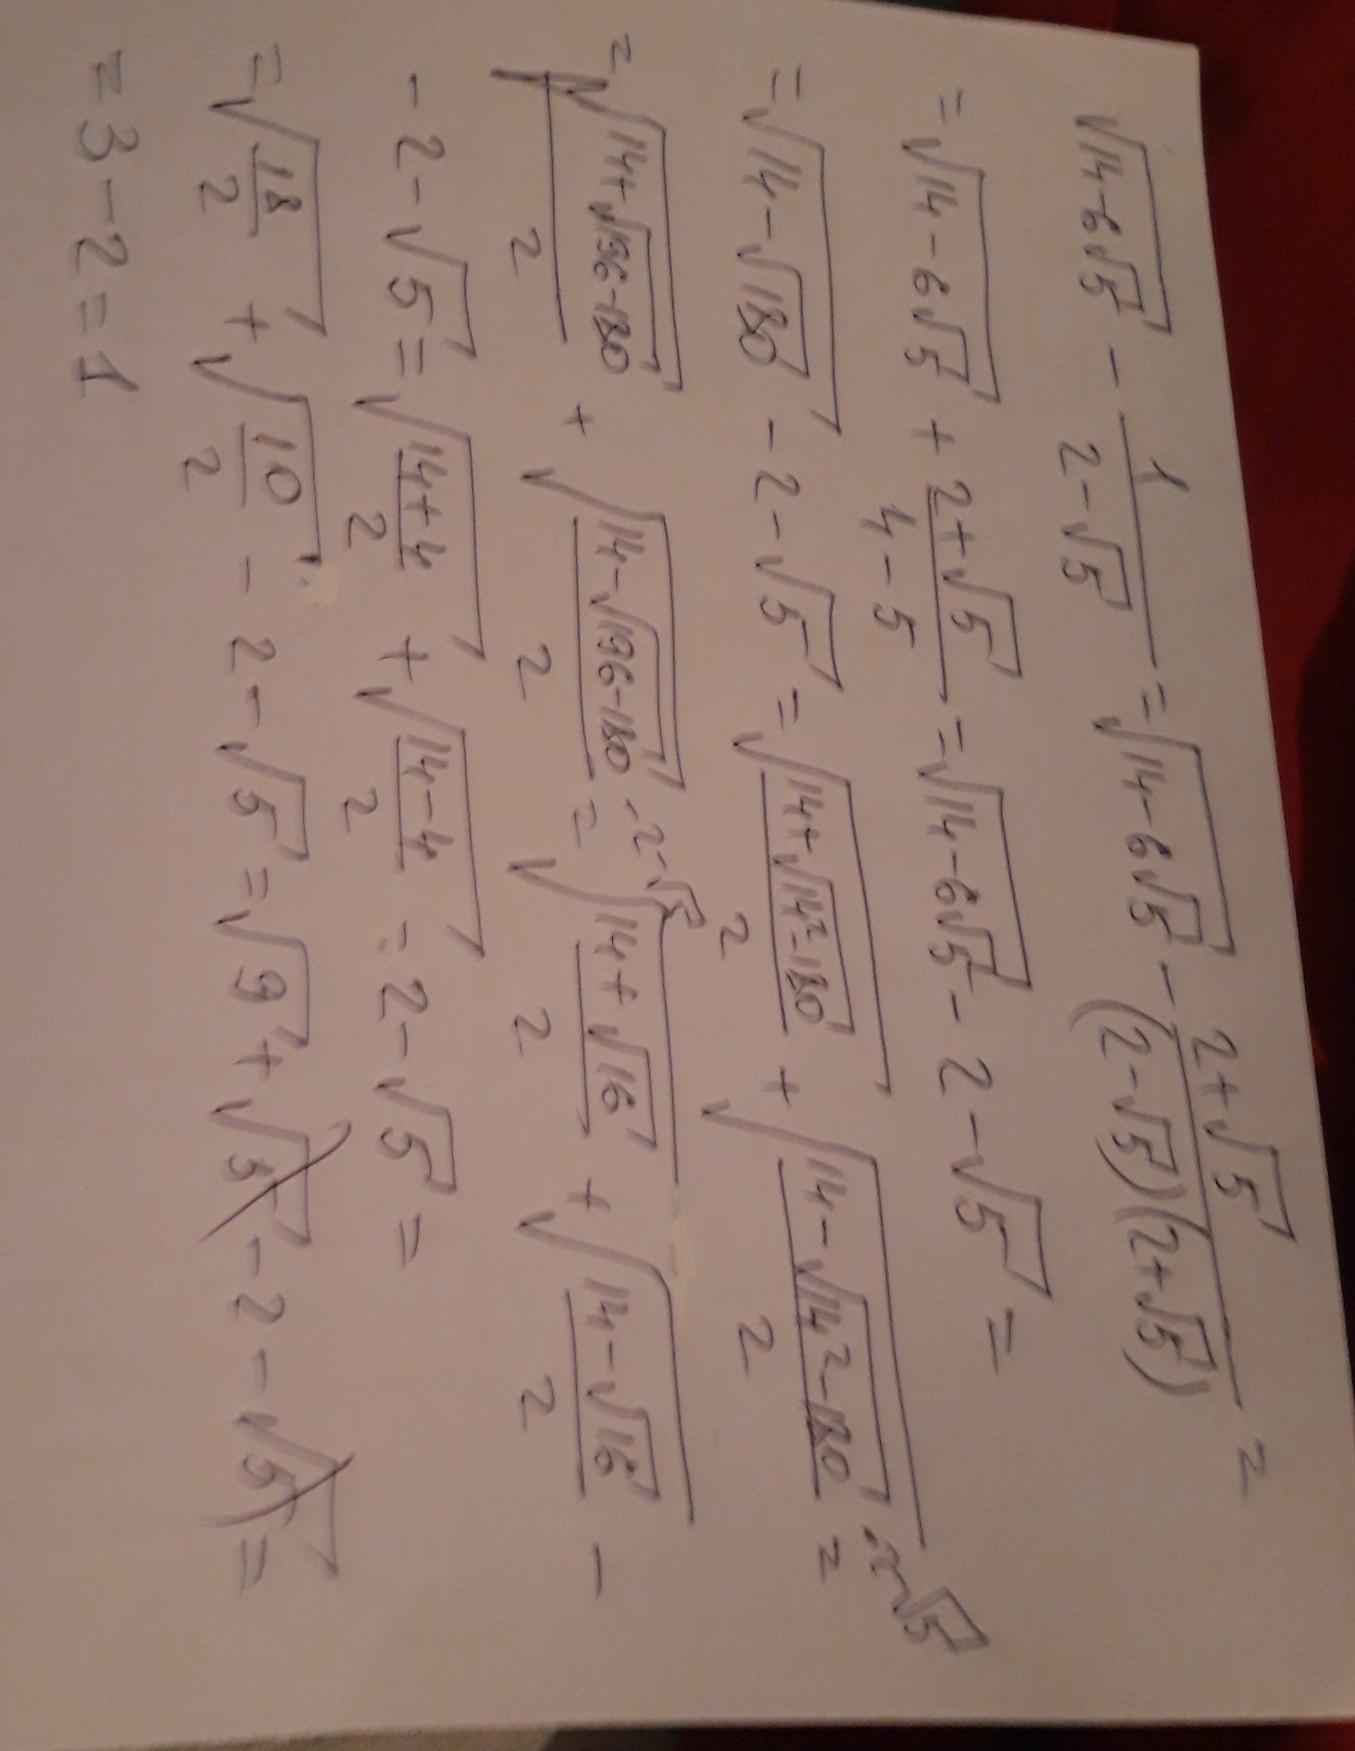 √(14-6√5) - 1/(2-√5) = √(14-6√5) - (2+√5)/((2-√5)(2+√5)) =
= √(14-6√5) + (2+√5)/(4-5) = √(14-6√5) - 2 - √5 =
= √(14-√180) - 2 - √5 = √((14+√(14²-180))/2) + √((14-√(14²-180))/2) - 2 - √5 =
= √((14+√(196-180))/2) + √((14-√(196-180))/2) - 2 - √5 = √((14+√16)/2) + √((14-√16)/2) -
- 2 - √5 = √((14+4)/2) + √((14-4)/2) = 2 - √5 =
= √(18/2) + √(10/2) - 2 - √5 = √9 + √5 - 2 - √5 =
= 3 - 2 = 1